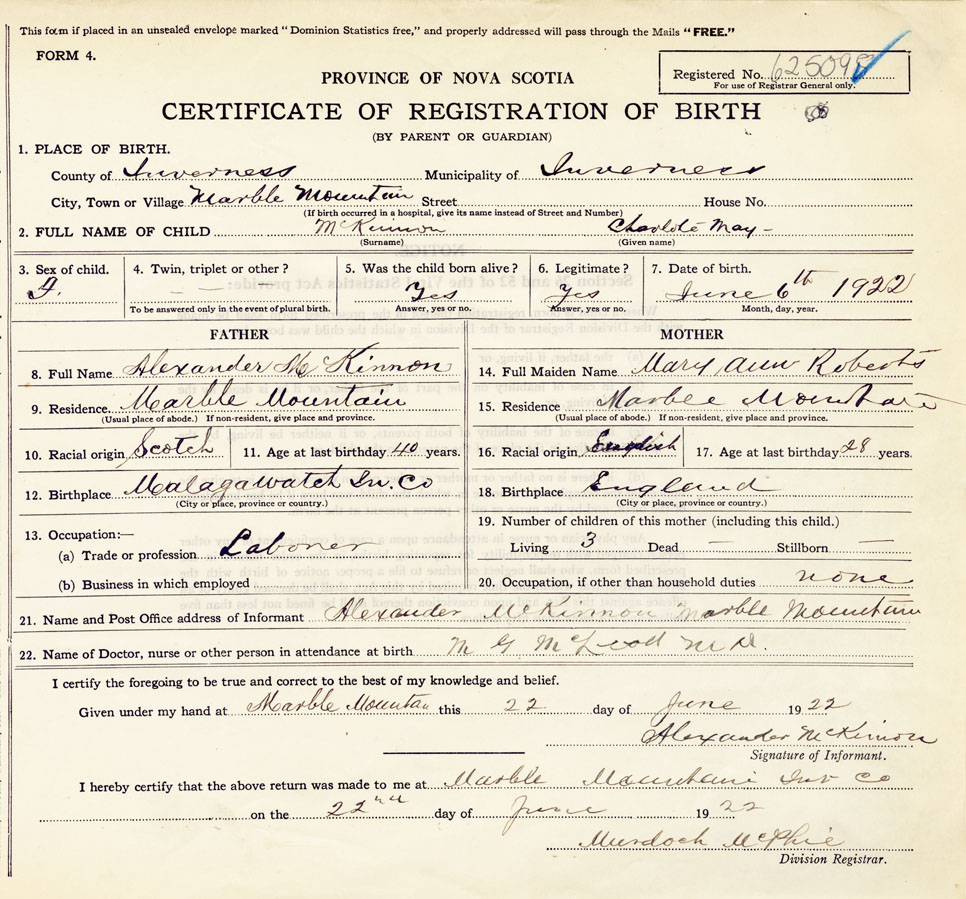 This form if placed in an unsealed envelope marked "Dominion Statistics free," and properly addressed will pass through the Mails "FREE."
FORM 4.
Registered No. 625098
For use of Registrar General only.
PROVINCE OF NOVA SCOTIA
CERTIFICATE OF REGISTRATION OF BIRTH
(BY PARENT OR GUARDIAN)
1. PLACE OF BIRTH.
County of Inverness Municipality of Inverness
City, Town or Village Marble Mountain Street House No.
(If birth occurred in a hospital, give its name instead of Street and Number)
2. FULL NAME OF CHILD McKinnon Charlote May -
(Surname) (Given name)
3. Sex of child. 4. Twin, triplet or other? 5. Was the child born alive? 6. Legitimate? 7. Date of birth.
F. — — Yes Yes June 6th 1922
To be answered only in the event of plural birth. Answer, yes or no. Answer, yes or no. Month, day, year.
FATHER MOTHER
8. Full Name Alexander McKinnon 14. Full Maiden Name Mary Ann Roberts
9. Residence. Marble Mountain 15. Residence Marble Mountain
(Usual place of abode.) If non-resident, give place and province. (Usual place of abode.) If non-resident, give place and province.
10. Racial origin Scotch 11. Age at last birthday 40 years. 16. Racial origin English 17. Age at last birthday 28 years.
12. Birthplace Malagawatch In. Co 18. Birthplace England
(City or place, province or country.) (City or place, province or country.)
13. Occupation:— 19. Number of children of this mother (including this child.)
(a) Trade or profession Laborer Living 3 Dead — Stillborn —
(b) Business in which employed 20. Occupation, if other than household duties none
21. Name and Post Office address of Informant Alexander McKinnon Marble Mountain
22. Name of Doctor, nurse or other person in attendance at birth M G McLeod M D.
I certify the foregoing to be true and correct to the best of my knowledge and belief.
Given under my hand at Marble Mountan this 22 day of June 1922
Alexander McKinnon
Signature of Informant.
I hereby certify that the above return was made to me at Marble Mountain Inv Co
on the 22nd day of June 1922
Murdoch McPhie
Division Registrar.